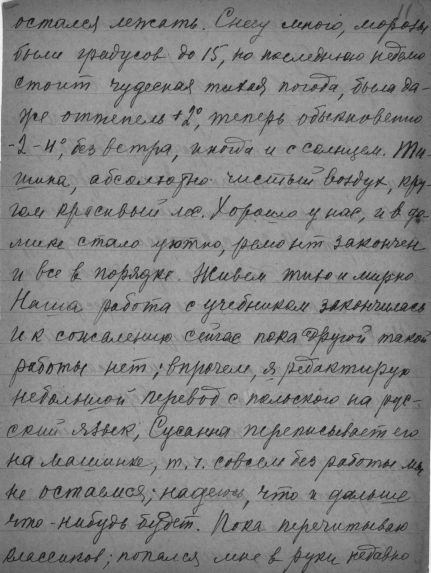 остался лежать. Снегу много, морозы
были градусов до 15, но последнюю неделю
стоит чудесная тихая погода, была да-
же оттепель +2°, теперь обыкновенно
-2-4°, без ветра, иногда и с солнцем. Ти-
шина, абсолютно чистый воздух, кру-
гом красивый лес. Хорошо у нас, и в до-
мике стало уютно, ремонт закончен
и все в порядке. Живем тихо и мирно
Наша работа с учебником закончилась
и к сожалению сейчас пока другой такой
работы нет; впрочем, я редактирую
небольшой перевод с польского на рус-
ский язык, Сусанна переписывает его
на машинке, т.ч. совсем без работы мы
не остаемся; надеюсь, что и дальше
что-нибудь будет. Пока перечитываю
классиков; попался мне в руки недавно